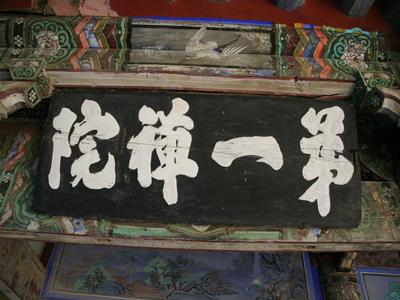 第一禪院